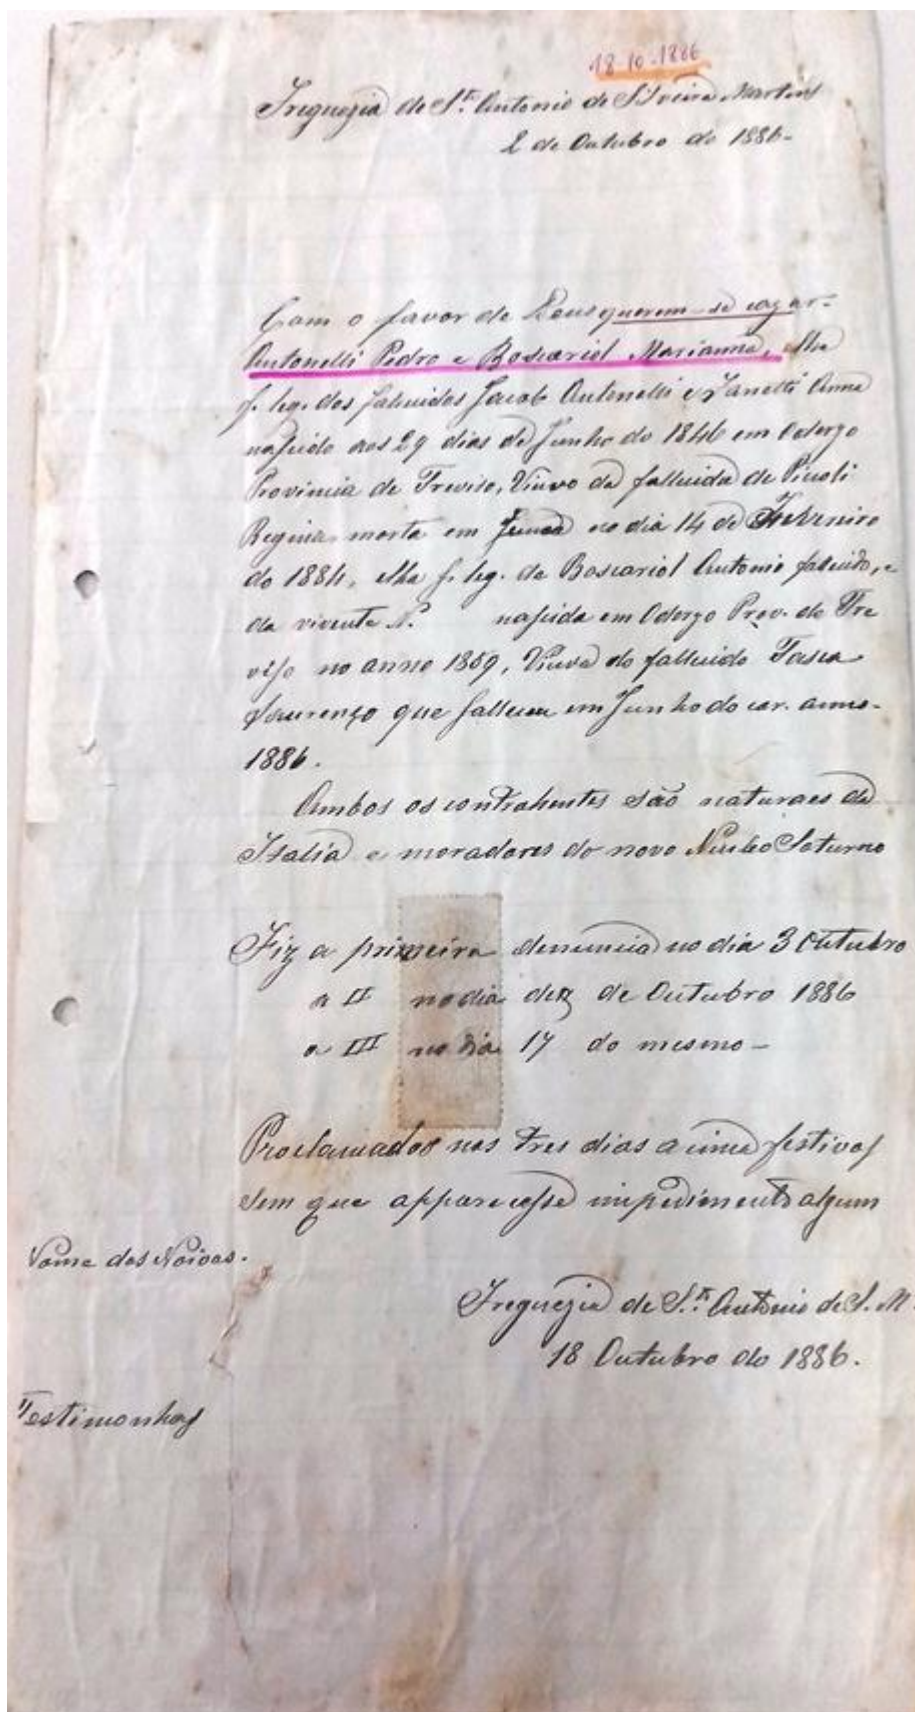 18-10-1886
Freguezia de S.to Antonio de Silveira Martins
2 de Outubro do 1886-
Com o favor de Deus querem-se cazar-
Antonelli Pedro e Boscariol Marianna, elle
f. leg. dos falucidos Jacob Antonelli e Zanetti Anna
nascido aos 29 dias de Junho do 1846 em Oderzo
Provincia de Treviso, Viuvo da fallecida de Picoli
Regina morta em no dia 14 de Fevereiro
do 1884, ella f. leg. de Boscariol Antonio falecido, e
da vivente N. nascida em Oderzo Prov. de Tre
viso no anno 1859, Viuva do fallecido Tasca
Lourenço que falleceu em Junho do cor. anno-
1886.
Ambos os contrahentes são naturaes da
Italia e moradores do novo Nucleo Soturno
Fiz a primeira denuncia no dia 3 Outubro
a II no dia dez de Outubro 1886
a III no dia 17 do mesmo-
Proclamados nos tres dias acima festivos
sem que apparecesse impedimento algum
Nome dos Noivos.
Freguezia de S.to Antonio de S. M.
18 Outubro do 1886.
Testimonhas